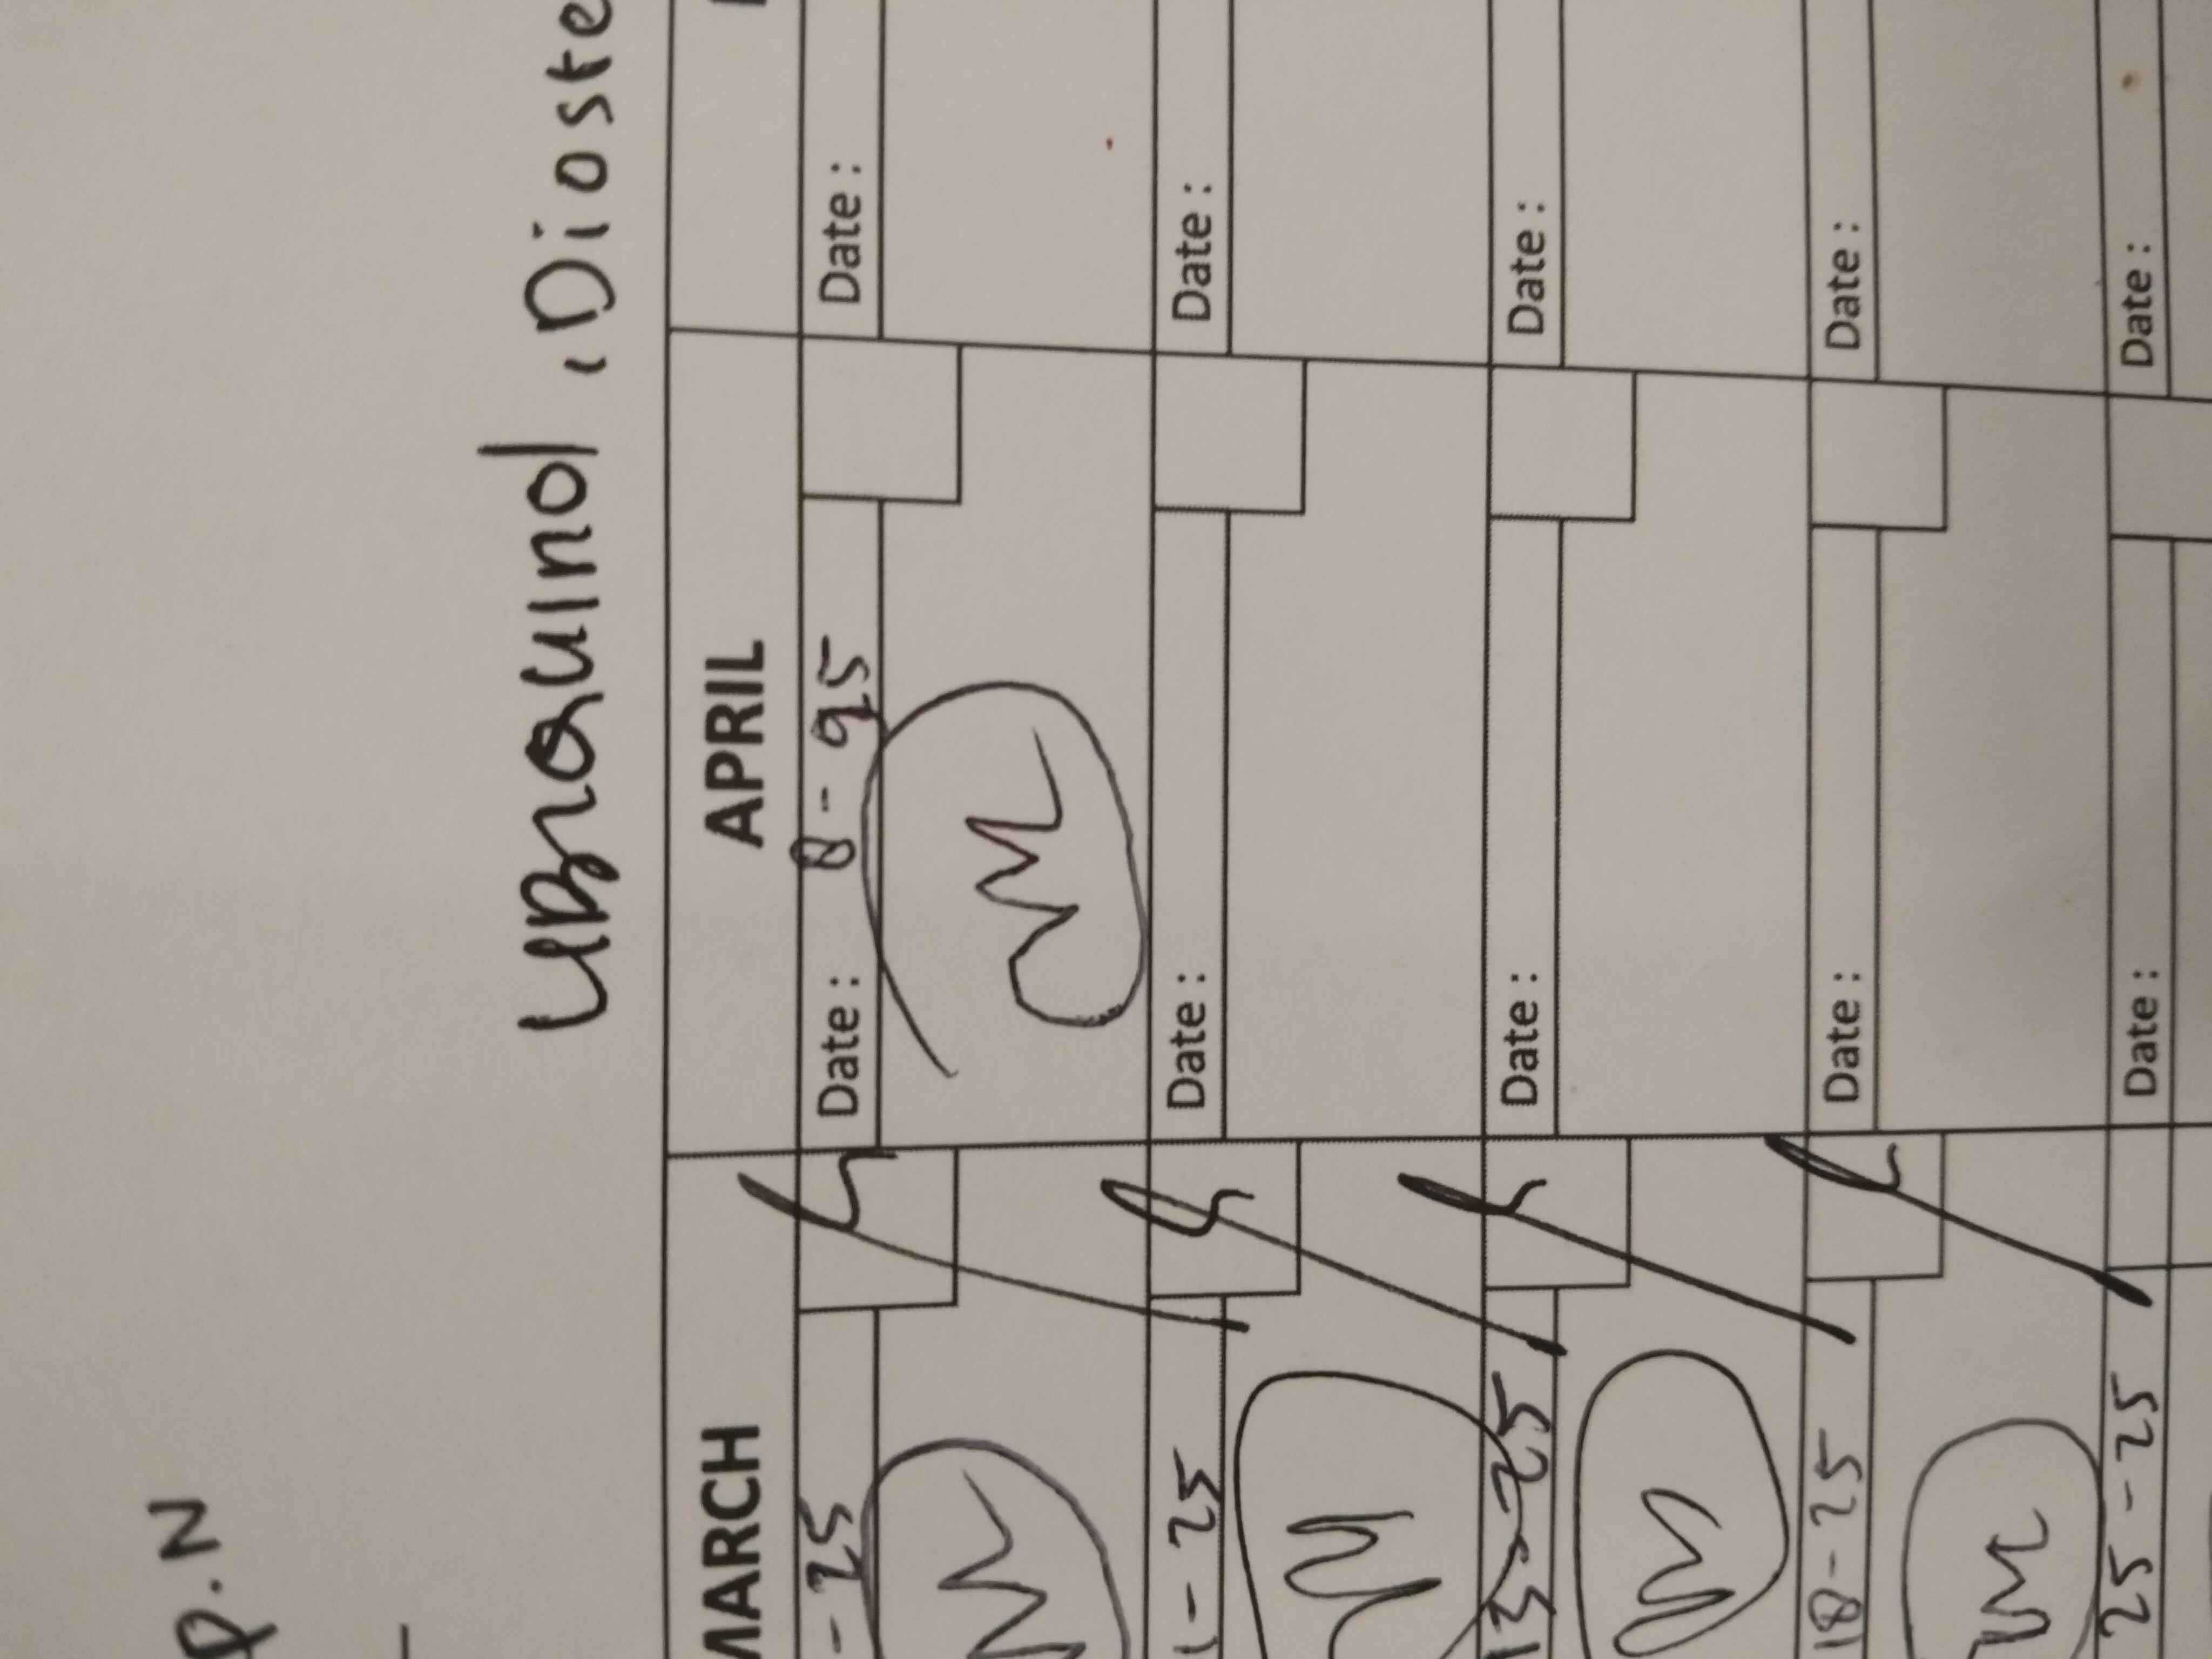 P.N
, Dioste
MARCH APRIL
- 25 Date : 8 - 25 Date :
1 - 25 Date : Date :
13 - 25 Date : Date :
18 - 25 Date : Date :
25 - 25 Date : Date :